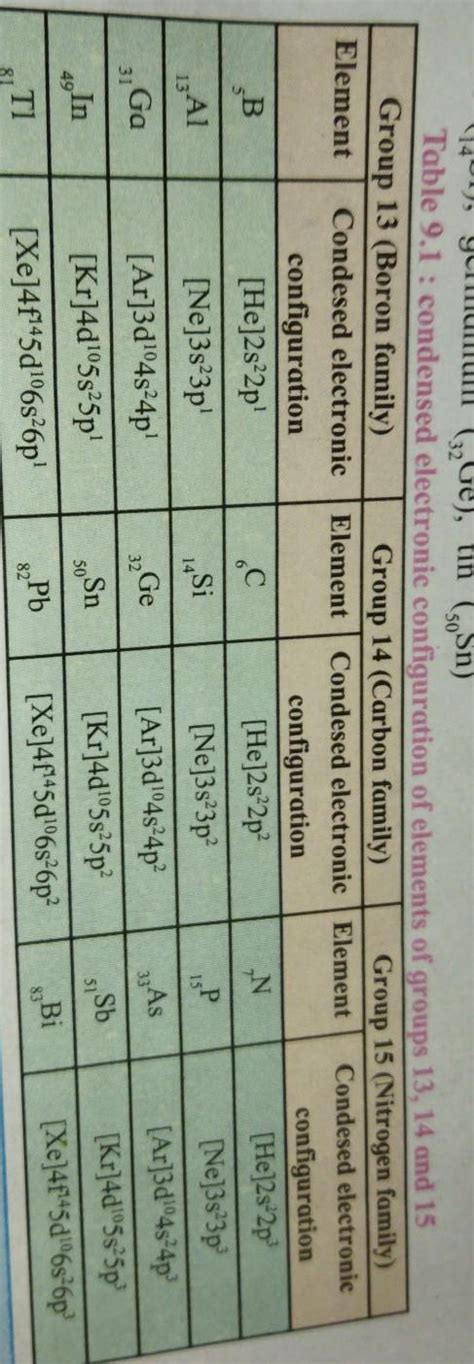 (₁₄Si), germanium (₃₂Ge), tin (₅₀Sn)
Table 9.1 : condensed electronic configuration of elements of groups 13, 14 and 15
Group 13 (Boron family) Group 14 (Carbon family) Group 15 (Nitrogen family)
Element Condesed electronic configuration Element Condesed electronic configuration Element Condesed electronic configuration
₅B [He]2s²2p¹ ₆C [He]2s²2p² ₇N [He]2s²2p³
₁₃Al [Ne]3s²3p¹ ₁₄Si [Ne]3s²3p² ₁₅P [Ne]3s²3p³
₃₁Ga [Ar]3d¹⁰4s²4p¹ ₃₂Ge [Ar]3d¹⁰4s²4p² ₃₃As [Ar]3d¹⁰4s²4p³
₄₉In [Kr]4d¹⁰5s²5p¹ ₅₀Sn [Kr]4d¹⁰5s²5p² ₅₁Sb [Kr]4d¹⁰5s²5p³
₈₁Tl [Xe]4f¹⁴5d¹⁰6s²6p¹ ₈₂Pb [Xe]4f¹⁴5d¹⁰6s²6p² ₈₃Bi [Xe]4f¹⁴5d¹⁰6s²6p³